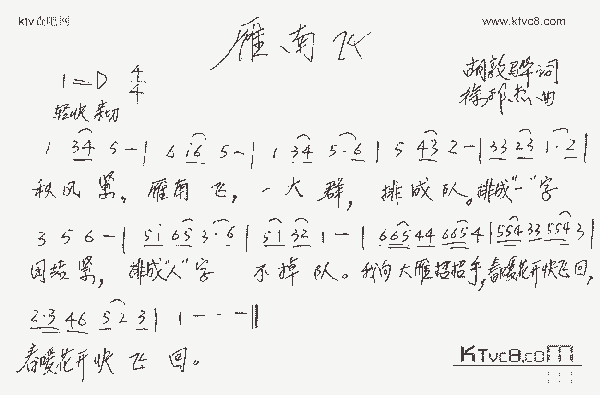 ktv查吧网
www.ktvc8.com
雁南飞
1=D 4/4
轻快 亲切
胡敦骅词
徐邦杰曲
1 34 5 - | 6 i6 5 - | 1 34 5·6 | 5 43 2 - | 33 23 1·2 |
秋风紧，雁南飞，一大群，排成队。排成“一”字
3 5 6 - | 5i 65 3·6 | 51 32 1 - | 665 44 665 4 | 554 33 554 3 |
团结紧，排成“人”字 不掉队。我向大雁招招手，春暖花开快飞回，
2·3 46 5 2 3 | 1 - - - ‖
春暖花开快飞回。
KTvc8.com